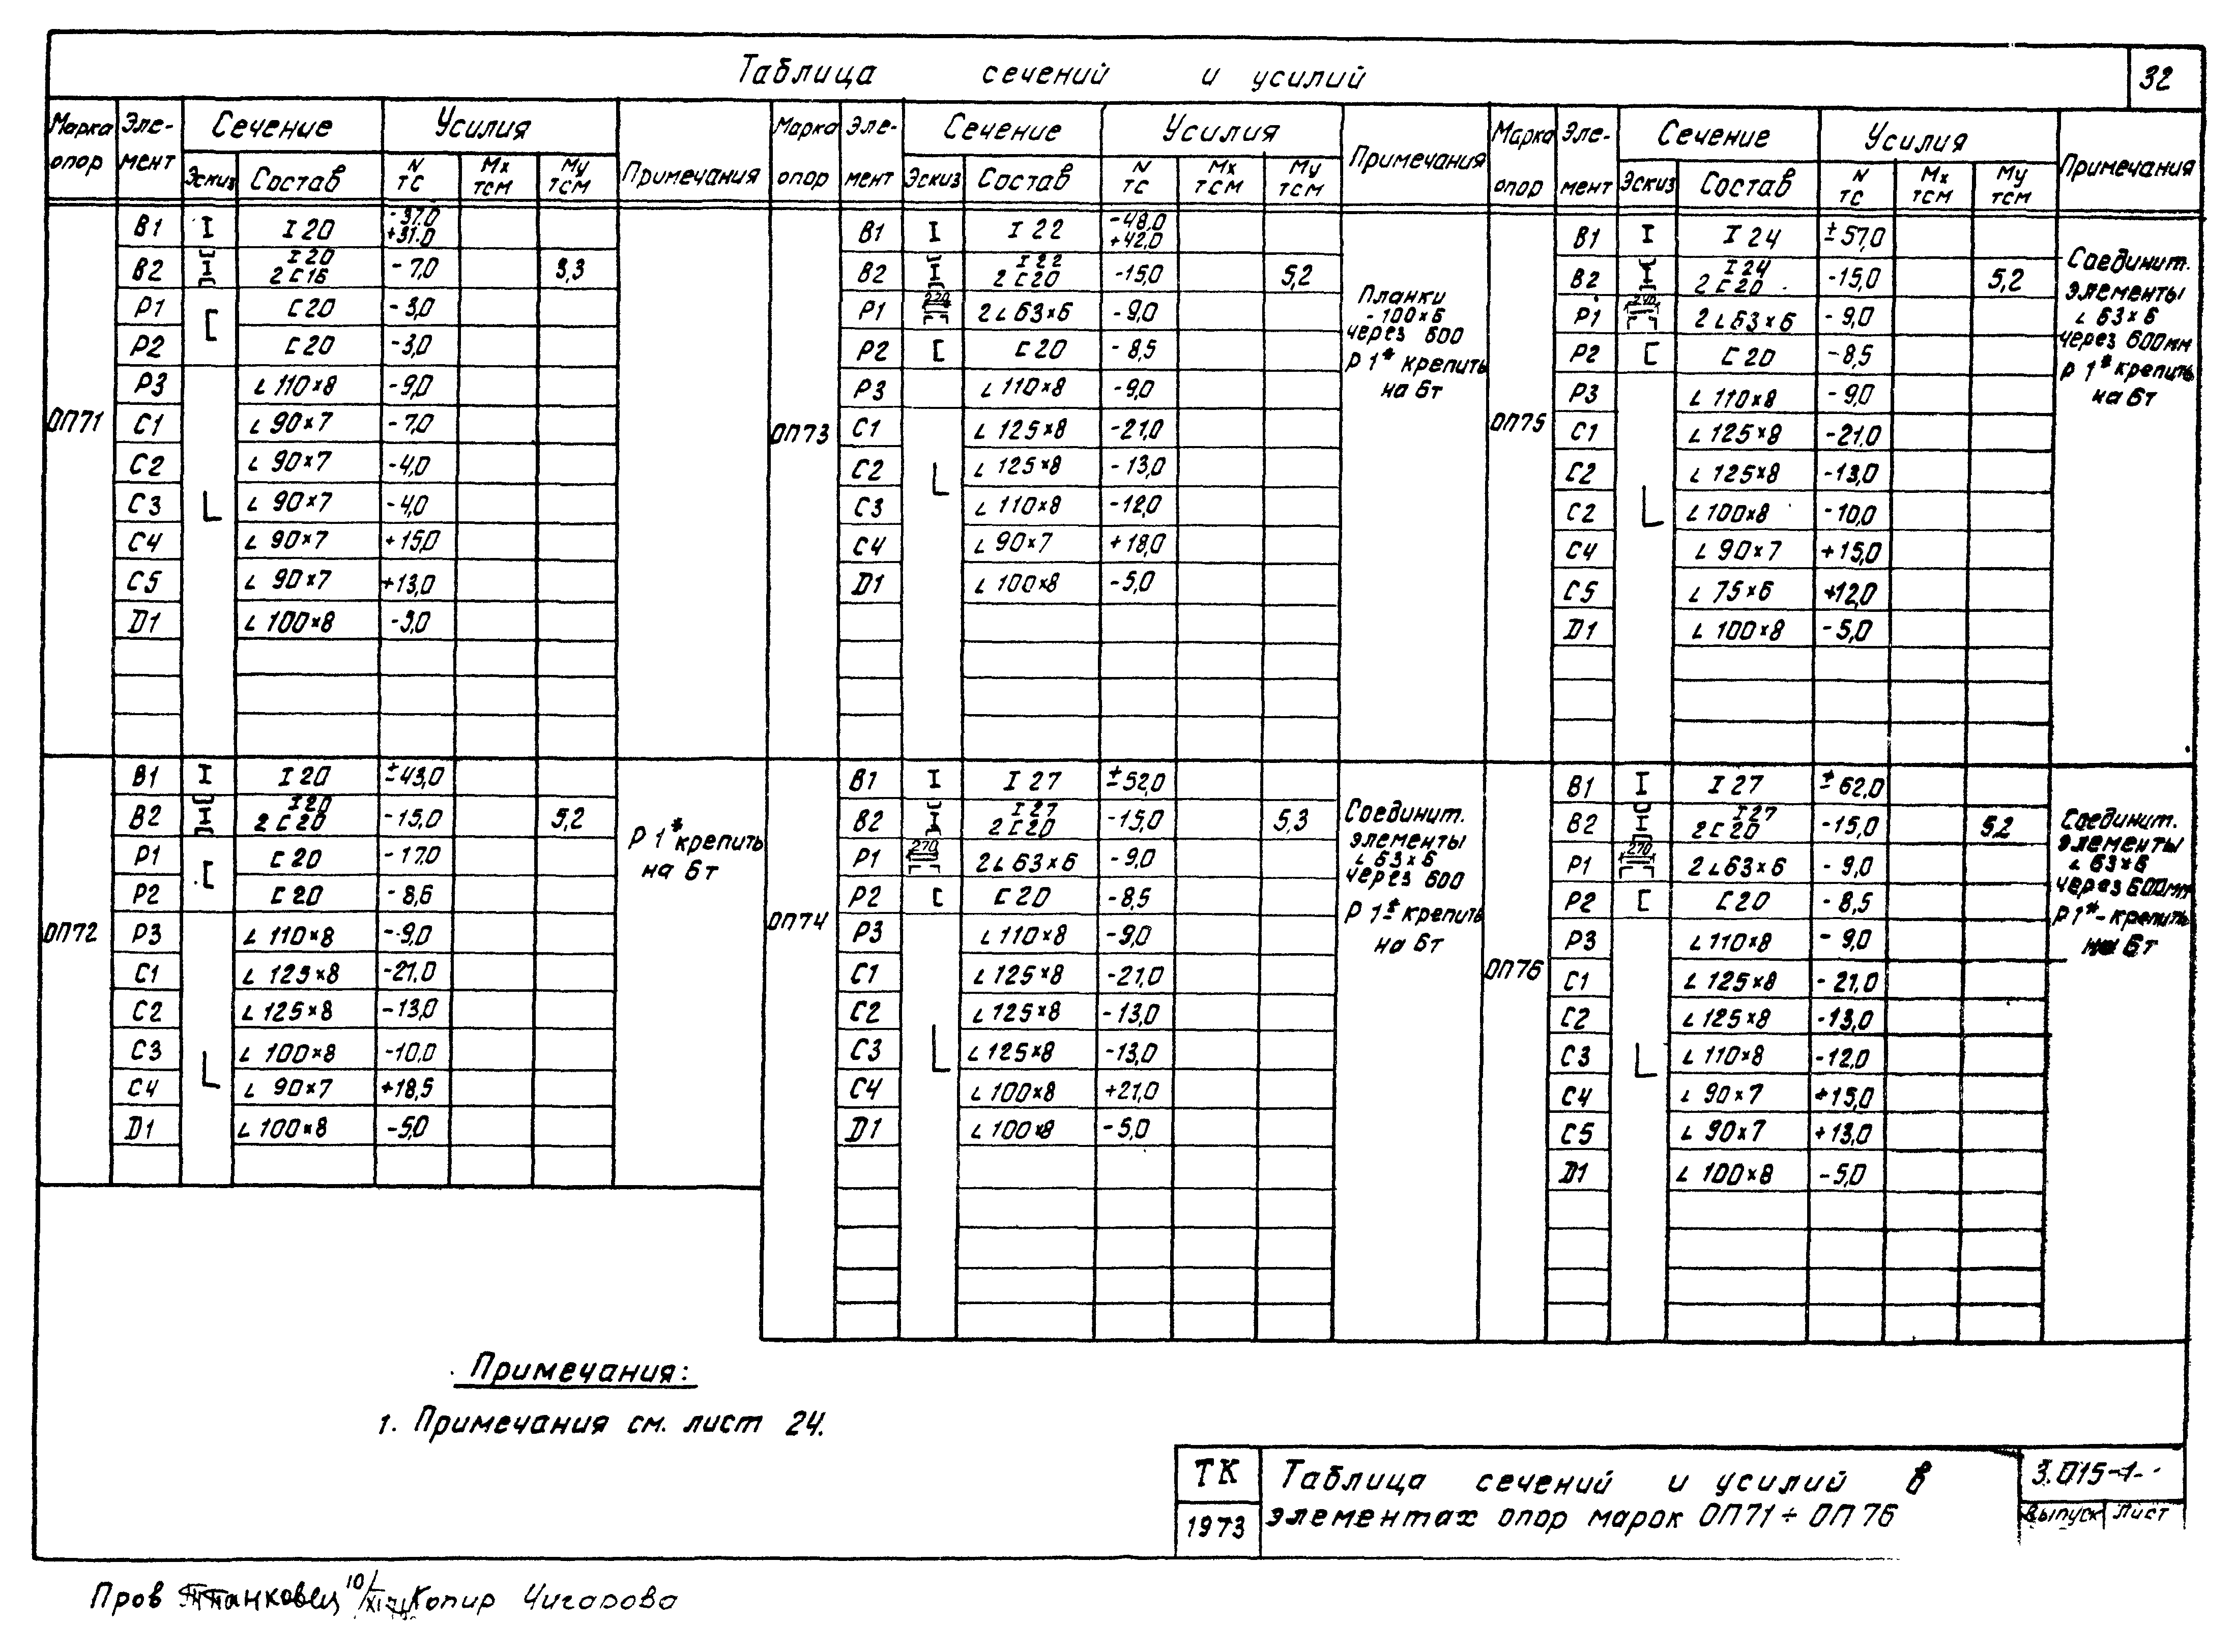 Таблица сечений и усилий
32
Марка опор Эле-мент Сечение Эскиз Состав Усилия N тс Mx тсм My тсм Примечания
ОП71
В1 I I 20 -37,0 +31,0
В2 I 20 2 [ 16 -7,0 3,3
Р1 [ 20 -3,0
Р2 [ 20 -3,0
Р3 L 110×8 -9,0
С1 L 90×7 -7,0
С2 L 90×7 -4,0
С3 L 90×7 -4,0
С4 L 90×7 +15,0
С5 L 90×7 +13,0
D1 L 100×8 -3,0
ОП72
В1 I I 20 ±43,0
В2 I 20 2 [ 20 -15,0 5,2
Р1 [ 20 -17,0
Р2 [ 20 -8,6
Р3 L 110×8 -9,0
С1 L 125×8 -21,0
С2 L 125×8 -13,0
С3 L 100×8 -10,0
С4 L 90×7 +18,5
D1 L 100×8 -5,0
Р 1* крепить
на 6т
Марка опор Эле-мент Сечение Эскиз Состав Усилия N тс Mx тсм My тсм Примечания
ОП73
В1 I I 22 -48,0 +42,0
В2 I 22 2 [ 20 -15,0 5,2
Р1 220 2 L 63×6 -9,0
Р2 [ [ 20 -8,5
Р3 L 110×8 -9,0
С1 L 125×8 -21,0
С2 L 125×8 -13,0
С3 L 110×8 -12,0
С4 L 90×7 +18,0
D1 L 100×8 -5,0
Планки
-100×6
через 600
Р 1* крепить
на 6т
ОП74
В1 I I 27 ±52,0
В2 I 27 2 [ 20 -15,0 5,3
Р1 270 2 L 63×6 -9,0
Р2 [ [ 20 -8,5
Р3 L 110×8 -9,0
С1 L 125×8 -21,0
С2 L 125×8 -13,0
С3 L 125×8 -13,0
С4 L 100×8 +21,0
D1 L 100×8 -5,0
Соединит.
элементы
L 63×6
через 600
Р 1* крепить
на 6т
Марка опор Эле-мент Сечение Эскиз Состав Усилия N тс Mx тсм My тсм Примечания
ОП75
В1 I I 24 ±57,0
В2 I 24 2 [ 20 -15,0 5,2
Р1 240 2 L 63×6 -9,0
Р2 [ [ 20 -8,5
Р3 L 110×8 -9,0
С1 L 125×8 -21,0
С2 L 125×8 -13,0
С2 L 100×8 -10,0
С4 L 90×7 +15,0
С5 L 75×6 +12,0
D1 L 100×8 -5,0
Соединит.
элементы
L 63×6
через 600мм
Р 1* крепить
на 6т
ОП76
В1 I I 27 ±62,0
В2 I 27 2 [ 20 -15,0 5,2
Р1 270 2 L 63×6 -9,0
Р2 [ [ 20 -8,5
Р3 L 110×8 -9,0
С1 L 125×8 -21,0
С2 L 125×8 -13,0
С3 L 110×8 -12,0
С4 L 90×7 +15,0
С5 L 90×7 +13,0
D1 L 100×8 -5,0
Соединит.
элементы
L 63×6
через 600мм
Р 1*-крепить
на 6т
Примечания:
1. Примечания см. лист 24.
ТК
1973
Таблица сечений и усилий в
элементах опор марок ОП71÷ОП76
3.015-1
Выпуск Лист
Пров Копир Чигарова